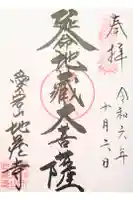 奉拝
令和六年
十月六日
延命地藏大菩薩
愛宕山地蔵寺